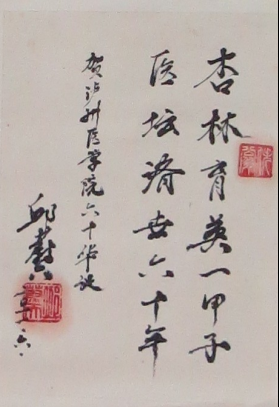 杏林育英一甲子
医坛济世六十年
贺泸州医学院六十华诞